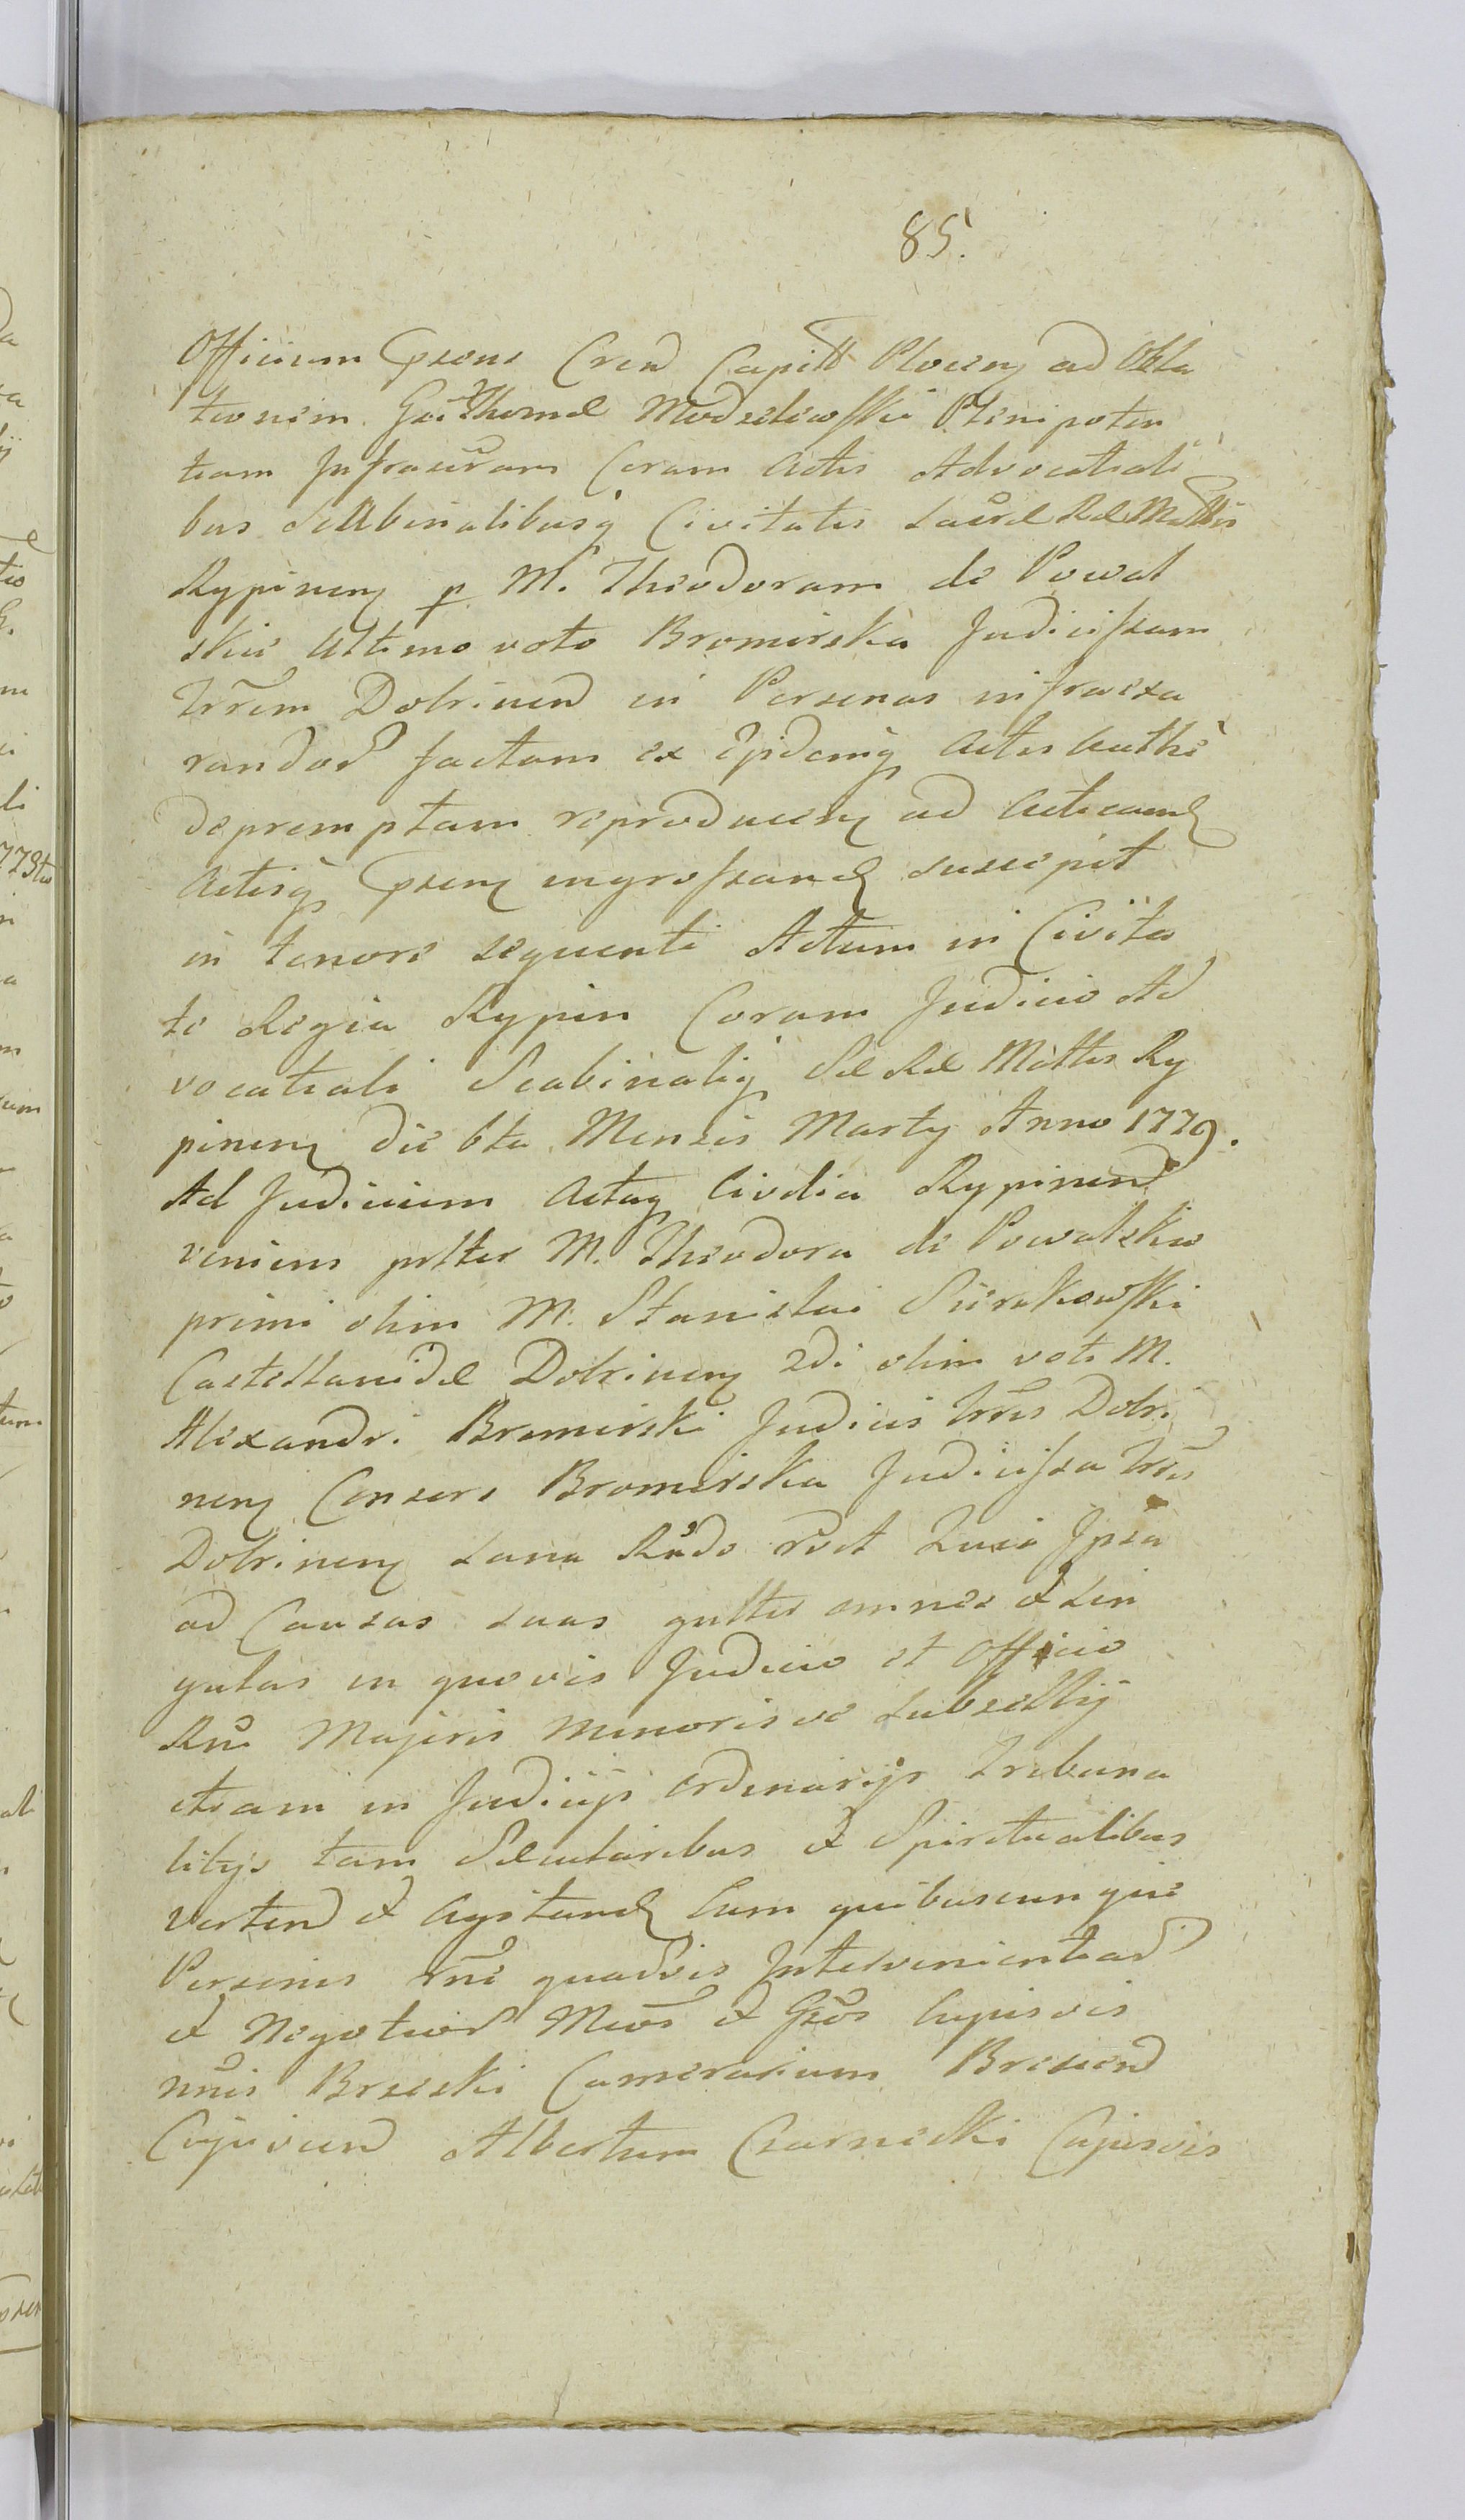 85.
Officium Psens Cren Capitt Plocen ad Obla
tionem Gsi Thomæ Modzelewski Plenipoten
tiam Infrascram Coram Actis Advocatiali
bus Scabinalibusq Civitatis Sacræ Ræ Mattis
Rypinen p M. Theodoram de Powal
skie ultimo voto Bromirska Judicissam
Trrem Dobrinen in Personas infraexa
randas factam ex Ejsdemq Actis authe
depremptam reproducen ad Acticand
Actisq Psen ingrossand suscepit
in tenore sequenti Actum in Civita
te Regia Rypin Coram Judicio Ad
vocatiali Scabinaliq Sæ Ræ Mattis Ry
pinen die 6ta Mensis Marty Anno 1779.
Ad Judicium Actaq Civilia Rypinen
veniens pslter M. Theodora de Powalskie
primi olim M. Stanislai Sierakowski
Castellanidæ Dobrinen 2di olim voti M.
Alexandri Bromirski Judicis Trris Dobri
nen Consors Bromirska Judicissa Trris
Dobrinen sana
ad Causas suas gnlter omnes & sin
gulas in quovis Judicio et Officio
Rni Majoris Minorisve Subsellij
etiam in Judicijs ordinarijs Tribuna
litijs tam Sæcularibus & Spiritualibus
verten & Agitand Cum quibuscunque
Personis rne quadvis Intervenientiad
& Negotior Mcos & Gsos Cujusvis
nnis Brzeski Camerarium Brescen
Cujavien Albertum Czarnecki Cujusvis